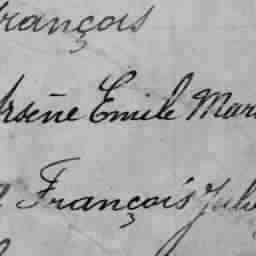 François
Arsène Emile Mari
François Juli